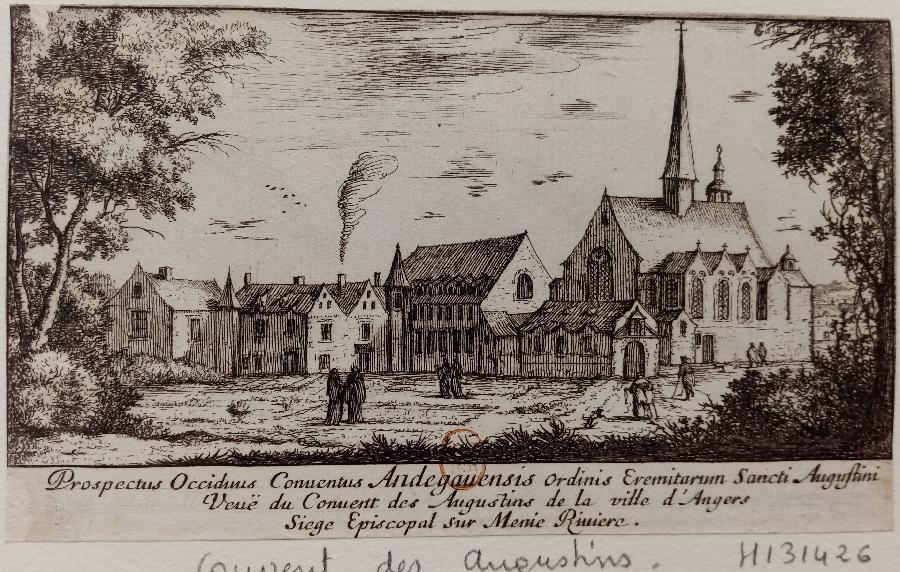 Prospectus Occiduus Conuentus Andegauensis Ordinis Eremitarum Sancti Augustini
Veuë du Conuent des Augustins de la ville d'Angers
Siege Episcopal sur Menie Riuiere.
Couvent des Augustins. H131426